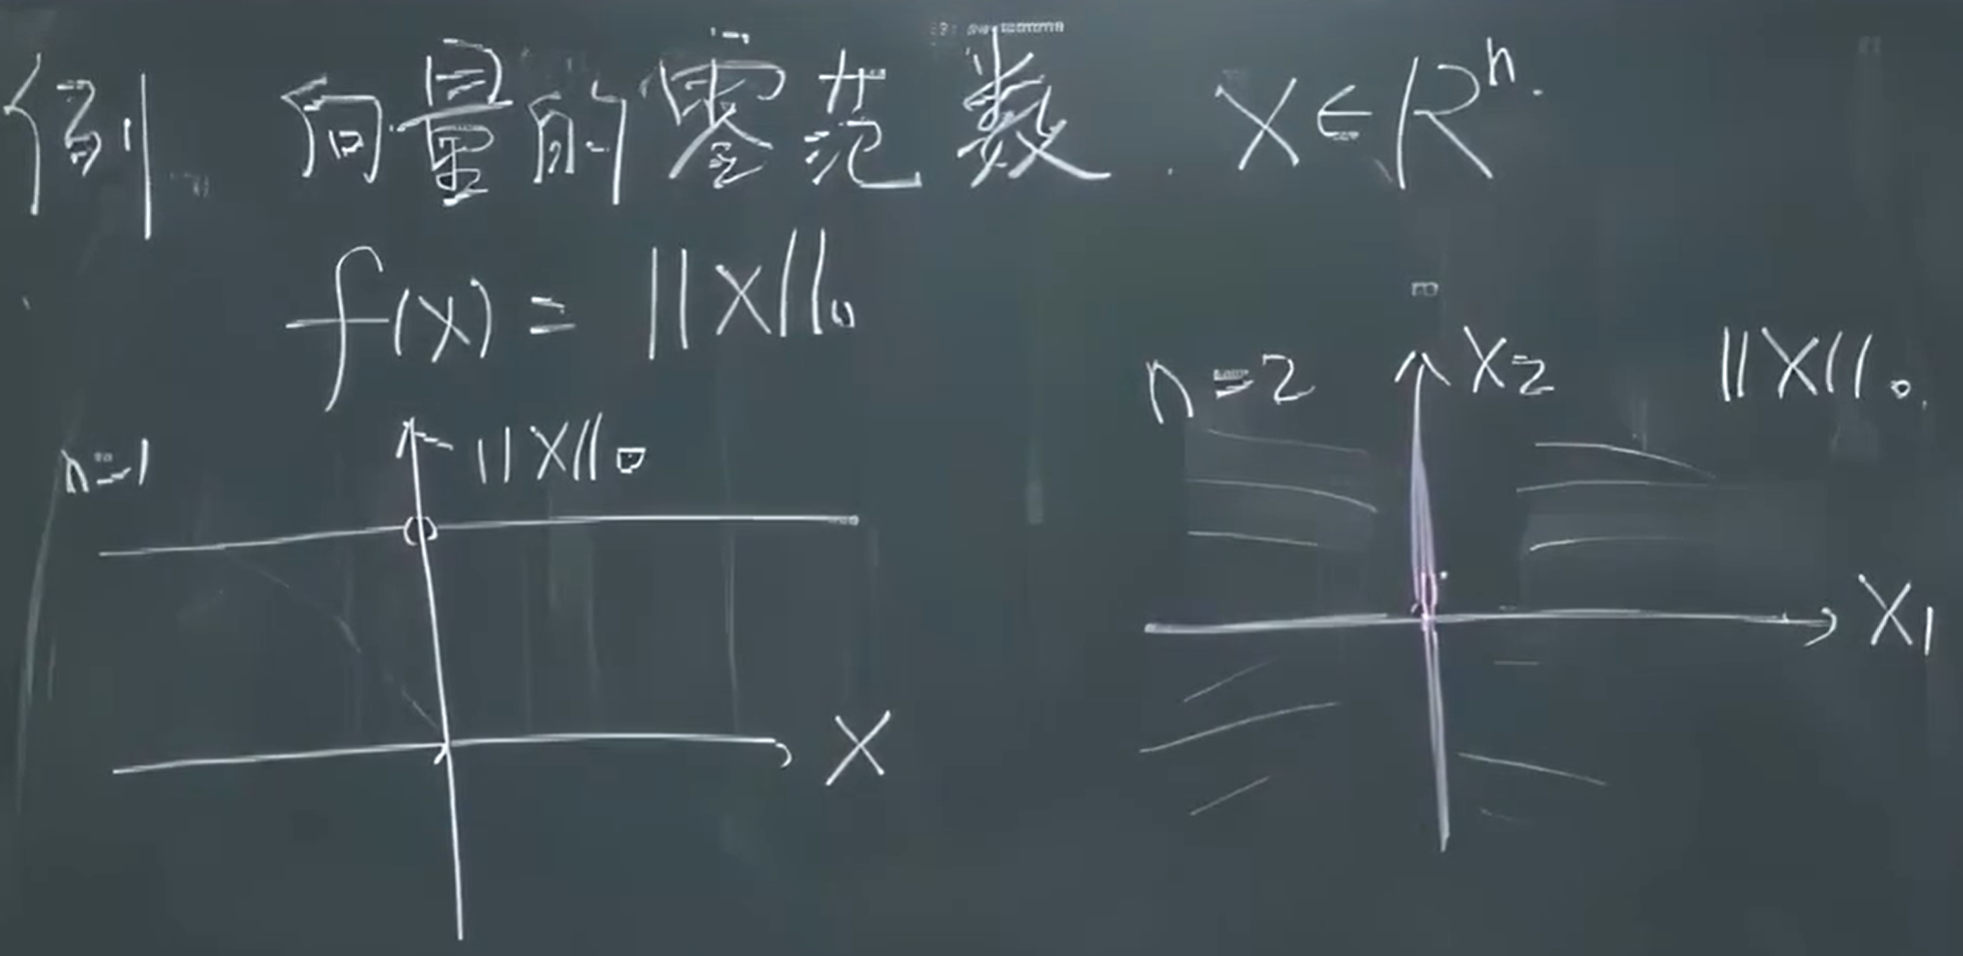 例 向量的零范数. X∈Rⁿ.
f(X) = ||X||₀
n=1 ||X||₀
X
n=2 X₂ ||X||₀
X₁